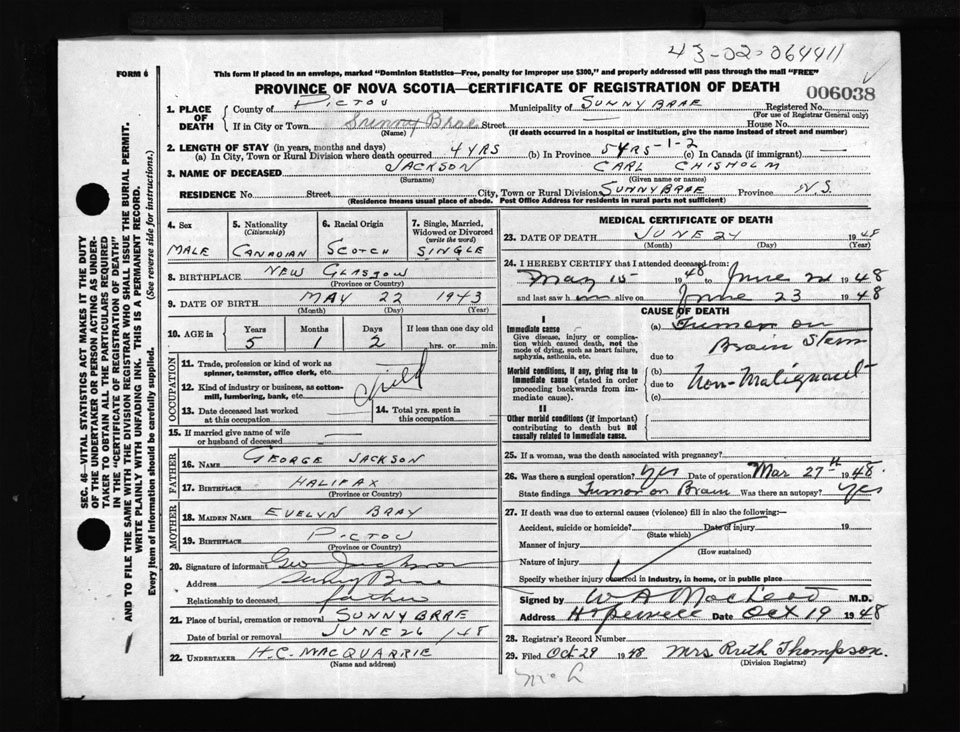 43-02-064411
FORM 6
This form if placed in an envelope, marked "Dominion Statistics—Free, penalty for improper use $300," and properly addressed will pass through the mail "FREE"
PROVINCE OF NOVA SCOTIA—CERTIFICATE OF REGISTRATION OF DEATH
006038
1. PLACE OF DEATH
County of PICTOU Municipality of SUNNY BRAE Registered No.
(For use of Registrar General only)
If in City or Town Sunny Brae Street — House No.
(Name) (If death occurred in a hospital or institution, give the name instead of street and number)
2. LENGTH OF STAY (in years, months and days)
(a) In City, Town or Rural Division where death occurred 4 YRS (b) In Province 5 YRS-1-2 (c) In Canada (if immigrant) —
3. NAME OF DECEASED JACKSON CARL CHISHOLM
(Surname) (Given name or names)
RESIDENCE No. Street City, Town or Rural Division SUNNY BRAE Province N.S.
(Residence means usual place of abode. Post Office Address for residents in rural parts not sufficient)
4. Sex
MALE
5. Nationality (Citizenship)
CANADIAN
6. Racial Origin
SCOTCH
7. Single, Married, Widowed or Divorced (write the word)
SINGLE
8. BIRTHPLACE NEW GLASGOW
(Province or Country)
9. DATE OF BIRTH MAY 22 1943
(Month) (Day) (Year)
10. AGE in Years Months Days If less than one day old
5 1 2 hrs. or min.
OCCUPATION
11. Trade, profession or kind of work as spinner, teamster, office clerk, etc.
12. Kind of industry or business, as cotton-mill, lumbering, bank, etc.
child
13. Date deceased last worked at this occupation
14. Total yrs. spent in this occupation
15. If married give name of wife or husband of deceased —
FATHER
16. NAME GEORGE JACKSON
17. BIRTHPLACE HALIFAX
MOTHER
18. MAIDEN NAME EVELYN BRAY
19. BIRTHPLACE PICTOU
(Province or Country)
20. Signature of informant Geo Jackson
Address Sunny Brae
Relationship to deceased father
21. Place of burial, cremation or removal SUNNY BRAE
Date of burial or removal JUNE 26/48
22. UNDERTAKER H.C. MACQUARRIE
(Name and address)
MEDICAL CERTIFICATE OF DEATH
23. DATE OF DEATH JUNE 24 1948
(Month) (Day) (Year)
24. I HEREBY CERTIFY that I attended deceased from:
May 15 1948 to June 24 1948
and last saw him alive on June 23 1948
CAUSE OF DEATH
I
Immediate cause
Give disease, injury or complication which caused death, not the mode of dying, such as heart failure, asphyxia, asthenia, etc.
(a) Tumor on
Brain Stem
due to
Morbid conditions, if any, giving rise to immediate cause (stated in order proceeding backwards from immediate cause).
(b) Non-Malignant
due to
(c)
II
Other morbid conditions (if important) contributing to death but not causally related to immediate cause.
25. If a woman, was the death associated with pregnancy?
26. Was there a surgical operation? Yes Date of operation Mar 27th 1948.
State findings Tumor on Brain Was there an autopsy? Yes
27. If death was due to external causes (violence) fill in also the following:—
Accident, suicide or homicide? Date of injury 19
(State which)
Manner of injury
(How sustained)
Nature of injury
Specify whether injury occurred in industry, in home, or in public place
Signed by W A MacLeod M.D.
Address Hopewell Date Oct 19 1948
28. Registrar's Record Number
29. Filed Oct 29 1948 Mrs Ruth Thompson.
(Division Registrar)
SEC. 46—VITAL STATISTICS ACT MAKES IT THE DUTY OF THE UNDERTAKER OR PERSON ACTING AS UNDERTAKER TO OBTAIN ALL THE PARTICULARS REQUIRED IN THE "CERTIFICATE OF REGISTRATION OF DEATH" AND TO FILE THE SAME WITH THE DIVISION REGISTRAR WHO SHALL ISSUE THE BURIAL PERMIT.
WRITE PLAINLY WITH UNFADING INK. THIS IS A PERMANENT RECORD.
Every item of information should be carefully supplied. (See reverse side for instructions.)